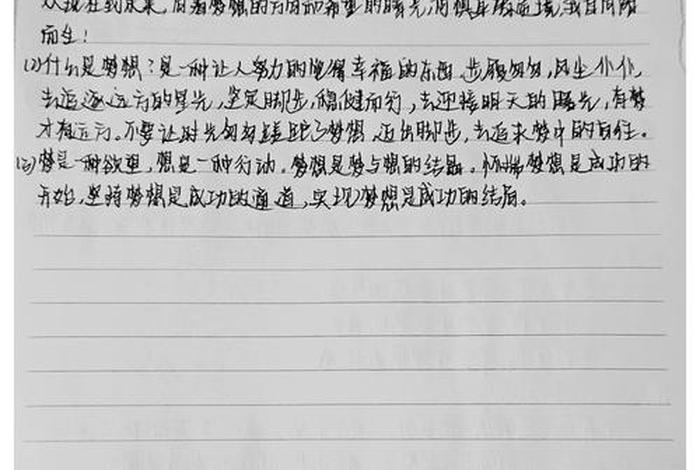 从现在到未来,向着梦想的方向和希望的曙光,
而生!
(2)什么是梦想?是一种让人努力的觉得幸福的东西。步履匆匆,风尘仆仆,
去追逐远方的星光,坚定脚步,稳健而行,去迎接明天的曙光,有梦
才有远方。不要让时光匆匆蹉跎了梦想,迈出脚步,去追求梦中的自任。
(3)梦是一种欲望,想是一种行动。梦想是梦与想的结晶。怀揣梦想是成功的
开始,坚持梦想是成功的通道,实现梦想是成功的结局。